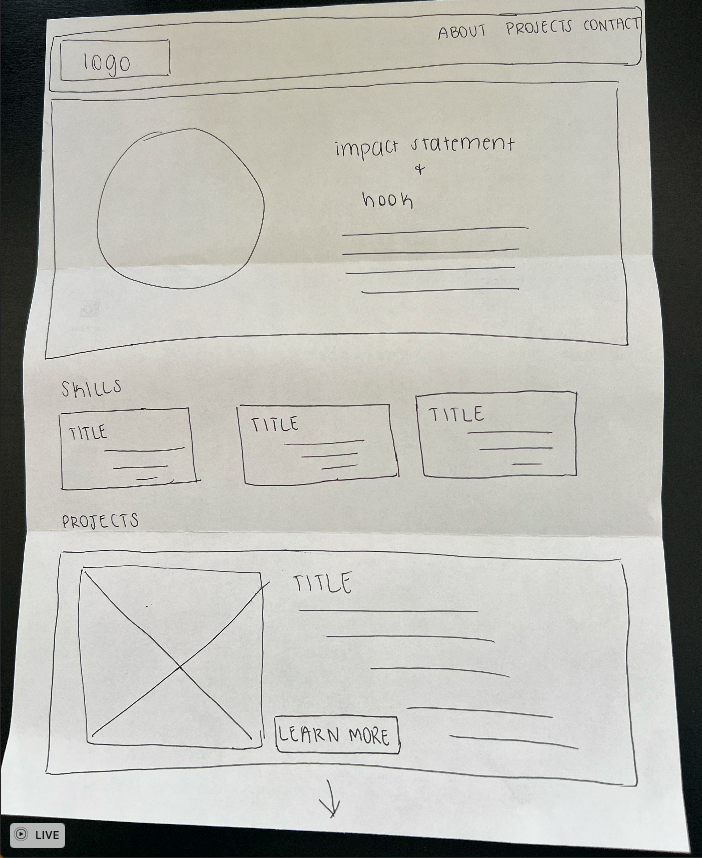 logo
ABOUT PROJECTS CONTACT
impact statement
+
hook
SKILLS
TITLE
TITLE
TITLE
PROJECTS
TITLE
LEARN MORE
LIVE